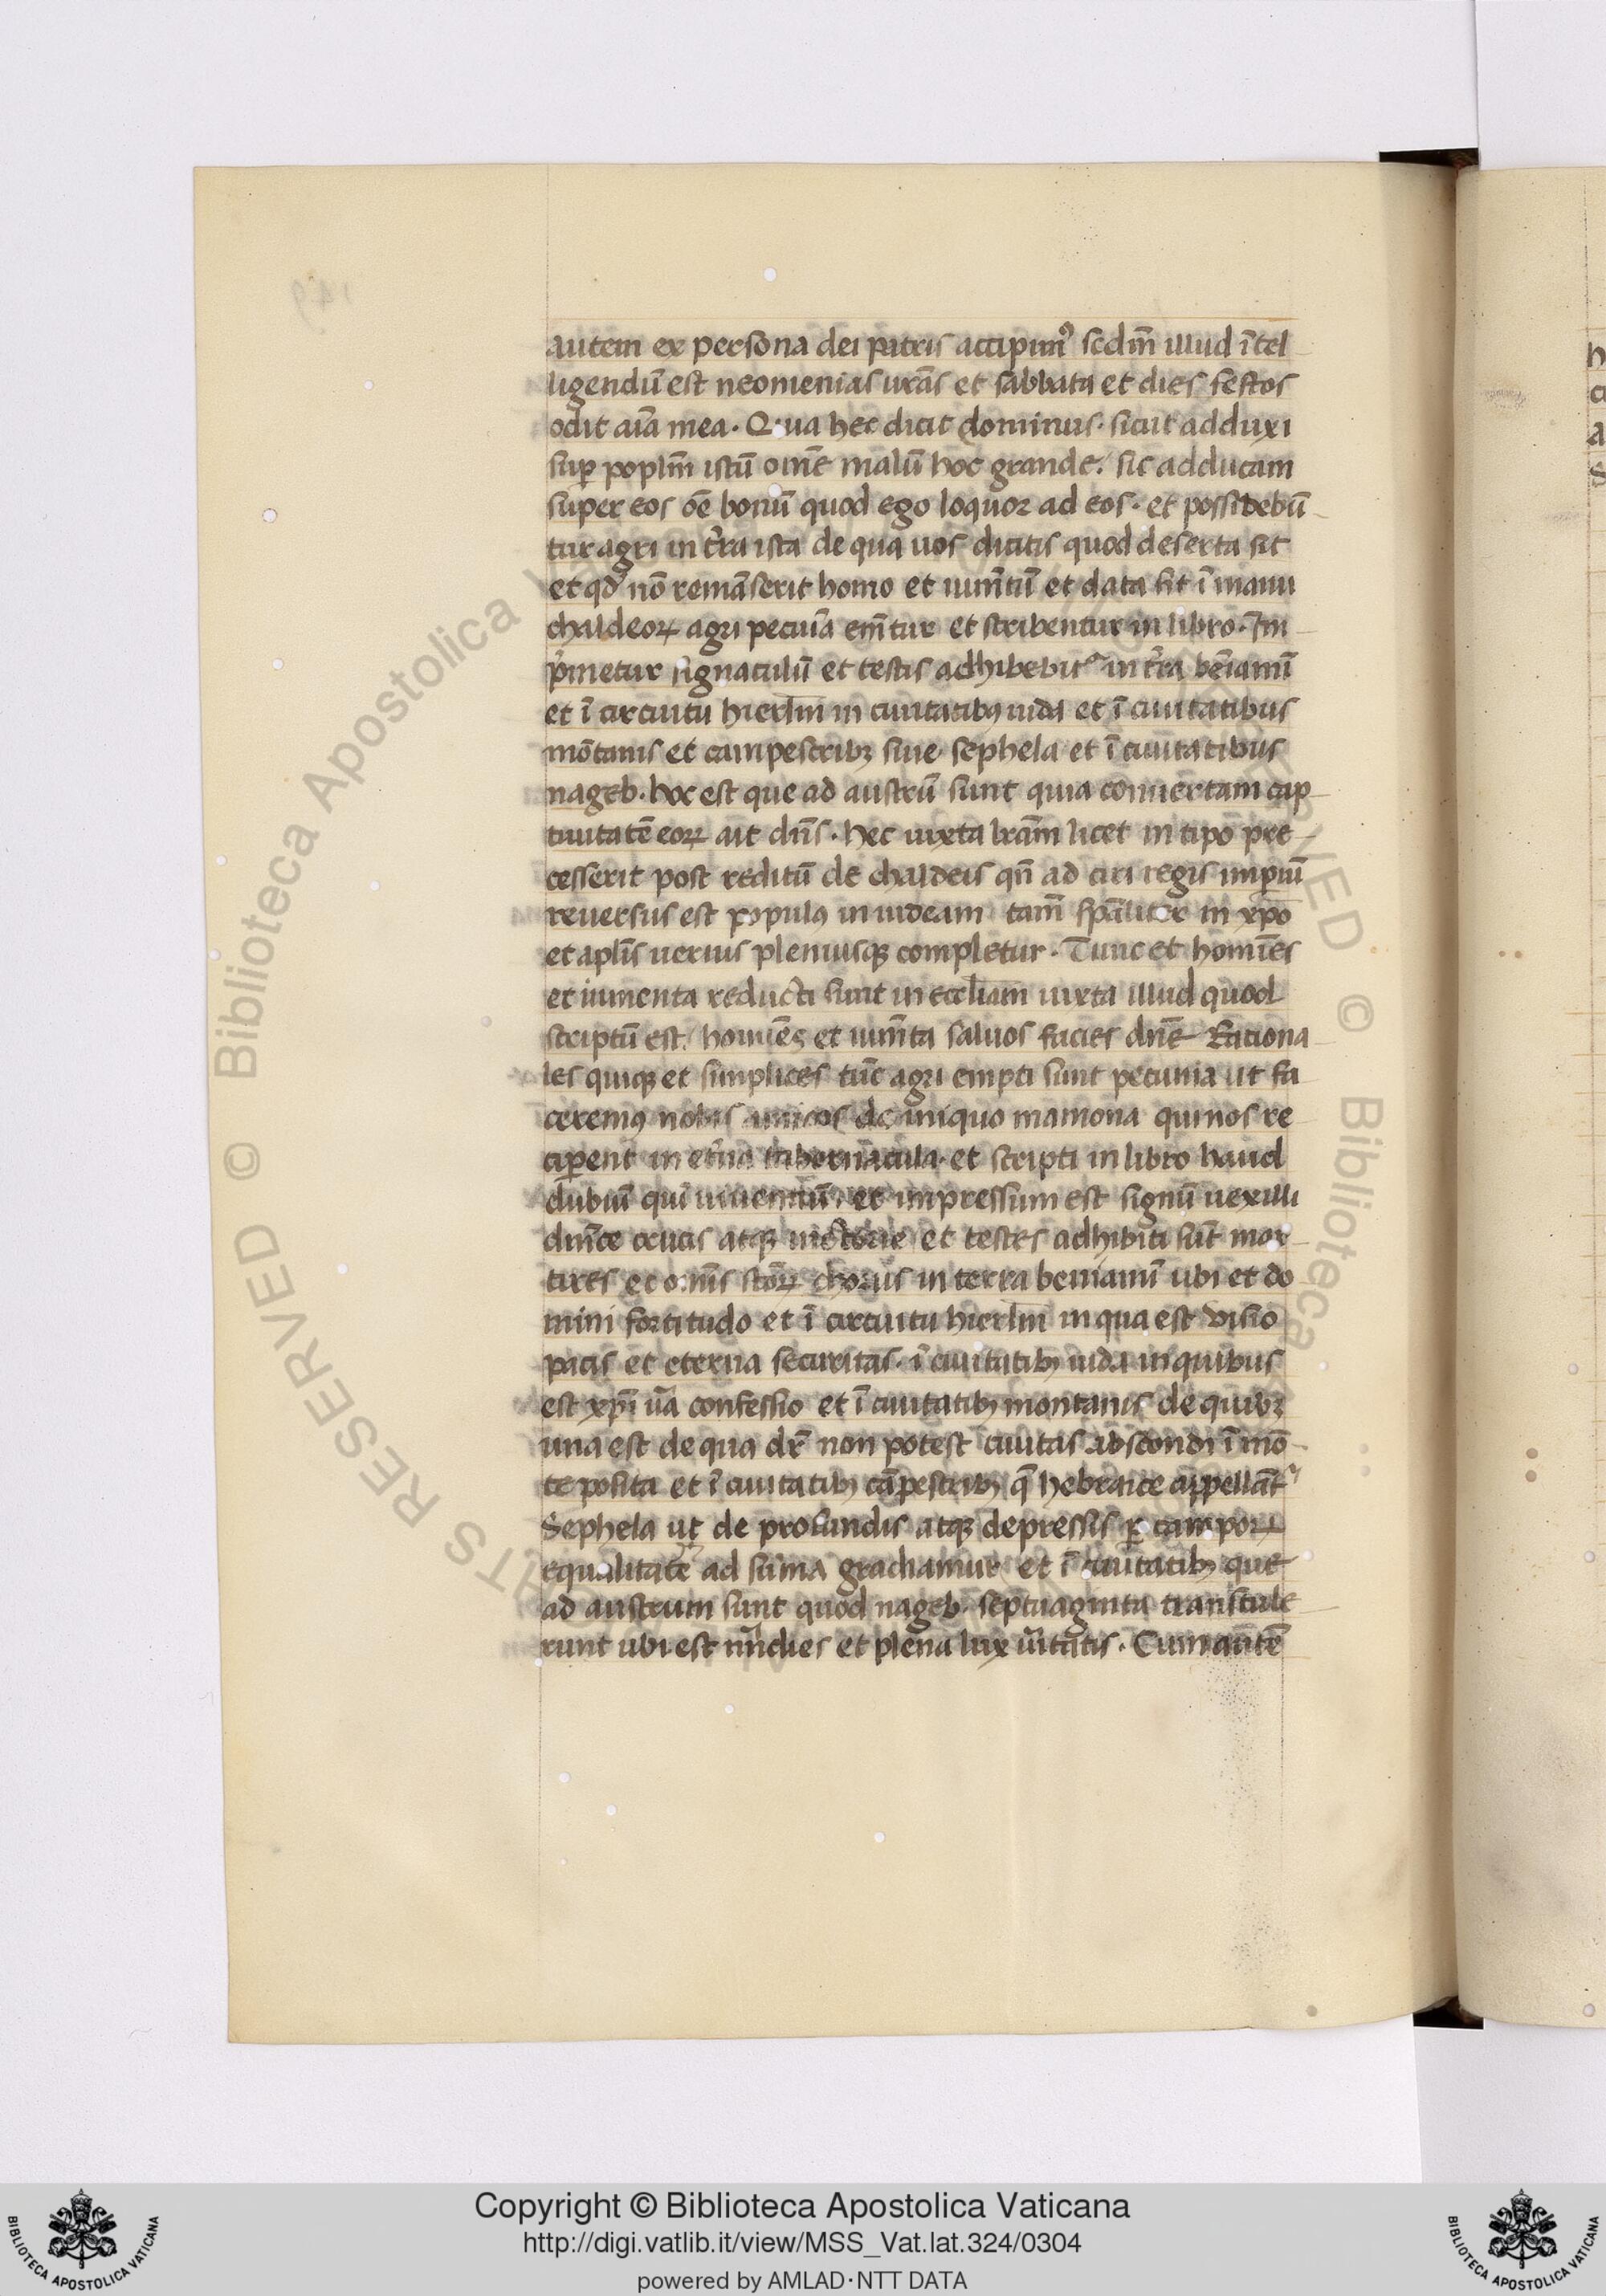 autem ex persona dei patris accipimꝰ scdm̄ illud ītel
ligendū est neomenias urās et sabbata et dies festos
odit aīa mea. Quia hec dicit dominus. sicut adduxi
suꝑ poplm̄ istū omē malū hoc grande. sic adducam
super eos oē bonū quod ego loquor ad eos. et possidebū
tur agri in t̄ra ista de qua uos dicitis quod deserta sit
et qd̓ nō remāserit homo et iumn̄tū et data sit ī manu
chaldeoꝝ agri pecuīa emn̄tur et scribentur in libro. Im
p̓metur signaculū et testis adhibebit᷑ in t̄ra beīamī
et ī circuitu hierlm̄ in ciuitatibꝫ iuda et ī ciuitatibus
mōtanis et campestribꝫ siue sephela et ī ciuitatibus
nageb. hoc est que ad austrū sunt quia conuertam cap
tiuitatē eoꝝ ait dn̄s. hec iuxta lrām licet in tipo pre
cesserit post reditū de chaldeis qn̄ ad ciri regis imꝑiū
reuersus est populꝫ in iudeam tam̄ spāliter in xp̄o
et aplīs uerius pleniusqꝫ completur. Tunc et homīes
et iumenta reducti sunt in eccl̄iam iuxta illud quod
scriptū est. homīes et iumn̄ta saluos facies dn̄e Rationa
les quiqꝫ et simplices tūc agri empti sunt pecunia ut fa
ceremꝫ nobis amicos de iniquo mamona qui nos re
ciꝑent in et̓na tabernacula. et scripti in libro haud
dubiū quī uiuentiū. et impressum est signū uexilli
dn̄ice crucis atqꝫ uictorie et testes adhibiti sūt mar
tires et omīs sc̄oꝝ chorus in terra beniamī ubi et do
mini fortitudo et ī circuitu hierlm̄ in qua est uisio
pacis et eterna securitas. ī ciuitatibꝫ iuda in quibus
est xp̄i u̓a confessio et ī ciuitatibꝫ montanis de quibꝫ
una est de qua dr̄ non potest ciuitas abscondi ī mō
te posita et ī ciuitatibꝫ cāpestribꝫ q̄ hebraice appellāt᷑
Sephela ut de profundis atqꝫ depressis ꝑ campoꝝ
equalitatē ad sūma gradiamur et ī ciuitatibꝫ que
ad austrum sunt quod nageb. septuaginta transtule
runt ubi est mi̓dies et plena lux u̓itatis. Cum autē
Copyright © Biblioteca Apostolica Vaticana
http://digi.vatlib.it/view/MSS_Vat.lat.324/0304
powered by AMLAD·NTT DATA